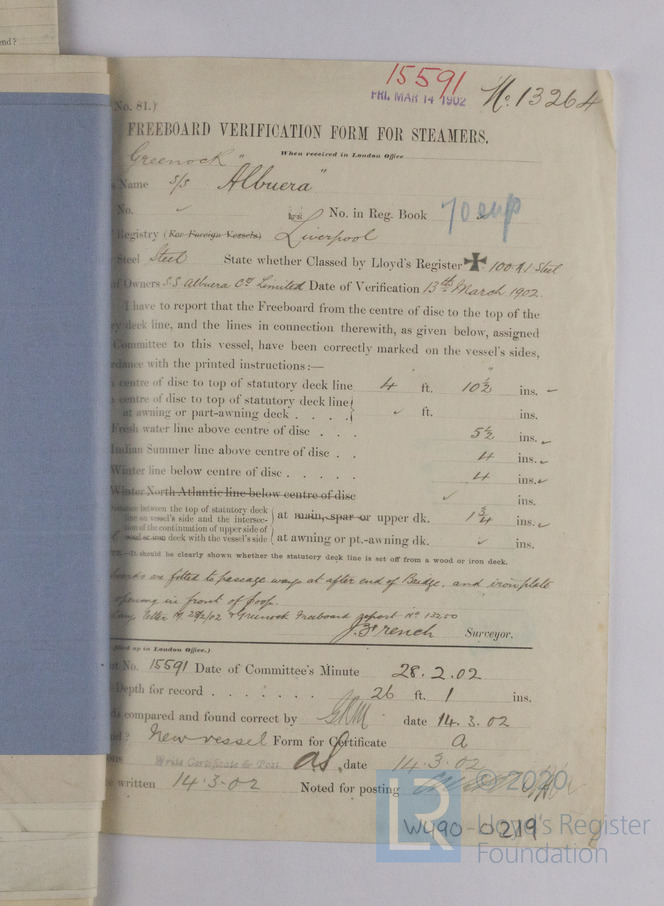 end?
15591
FRI. MAR 14 1902
No. 13264
No. 81.)
FREEBOARD VERIFICATION FORM FOR STEAMERS.
When received in London Office
Greenock
Name S/S "Albuera"
No. No. in Reg. Book 70 sup
Registry (For Foreign Vessels) Liverpool
Steel Steel State whether Classed by Lloyd's Register ✠ 100 A1 Steel
of Owners S.S. Albuera Co. Limited Date of Verification 13th March 1902.
I have to report that the Freeboard from the centre of disc to the top of the
deck line, and the lines in connection therewith, as given below, assigned
Committee to this vessel, have been correctly marked on the vessel's sides,
with the printed instructions:—
centre of disc to top of statutory deck line 4 ft. 10½ ins.
centre of disc to top of statutory deck line
at awning or part-awning deck . . . . ft. ins.
Fresh water line above centre of disc . . . 5½ ins.
Indian Summer line above centre of disc . . 4 ins.
Winter line below centre of disc . . . . . 4 ins.
Winter North Atlantic line below centre of disc ins.
between the top of statutory deck
line on vessel's side and the intersec- at main, spar or upper dk. 1¾ ins.
tion of the continuation of upper side of
wood or iron deck with the vessel's side at awning or pt.-awning dk. ins.
It should be clearly shown whether the statutory deck line is set off from a wood or iron deck.
fitted to passage ways at after end of Bridge, and iron plate
opening in front of poop.
letter 28/2/02 & Greenock Freeboard report No 13250
J. French Surveyor.
filled up in London Office.)
No. 15591 Date of Committee's Minute 28.2.02
Depth for record . . . . . . . 26 ft. 1 ins.
compared and found correct by date 14.3.02
? New vessel Form for Certificate a
Write Certificate & Post date 14.3.02
written 14.3.02 Noted for posting
© 2020
LR
Lloyd's Register
Foundation
W490-0219